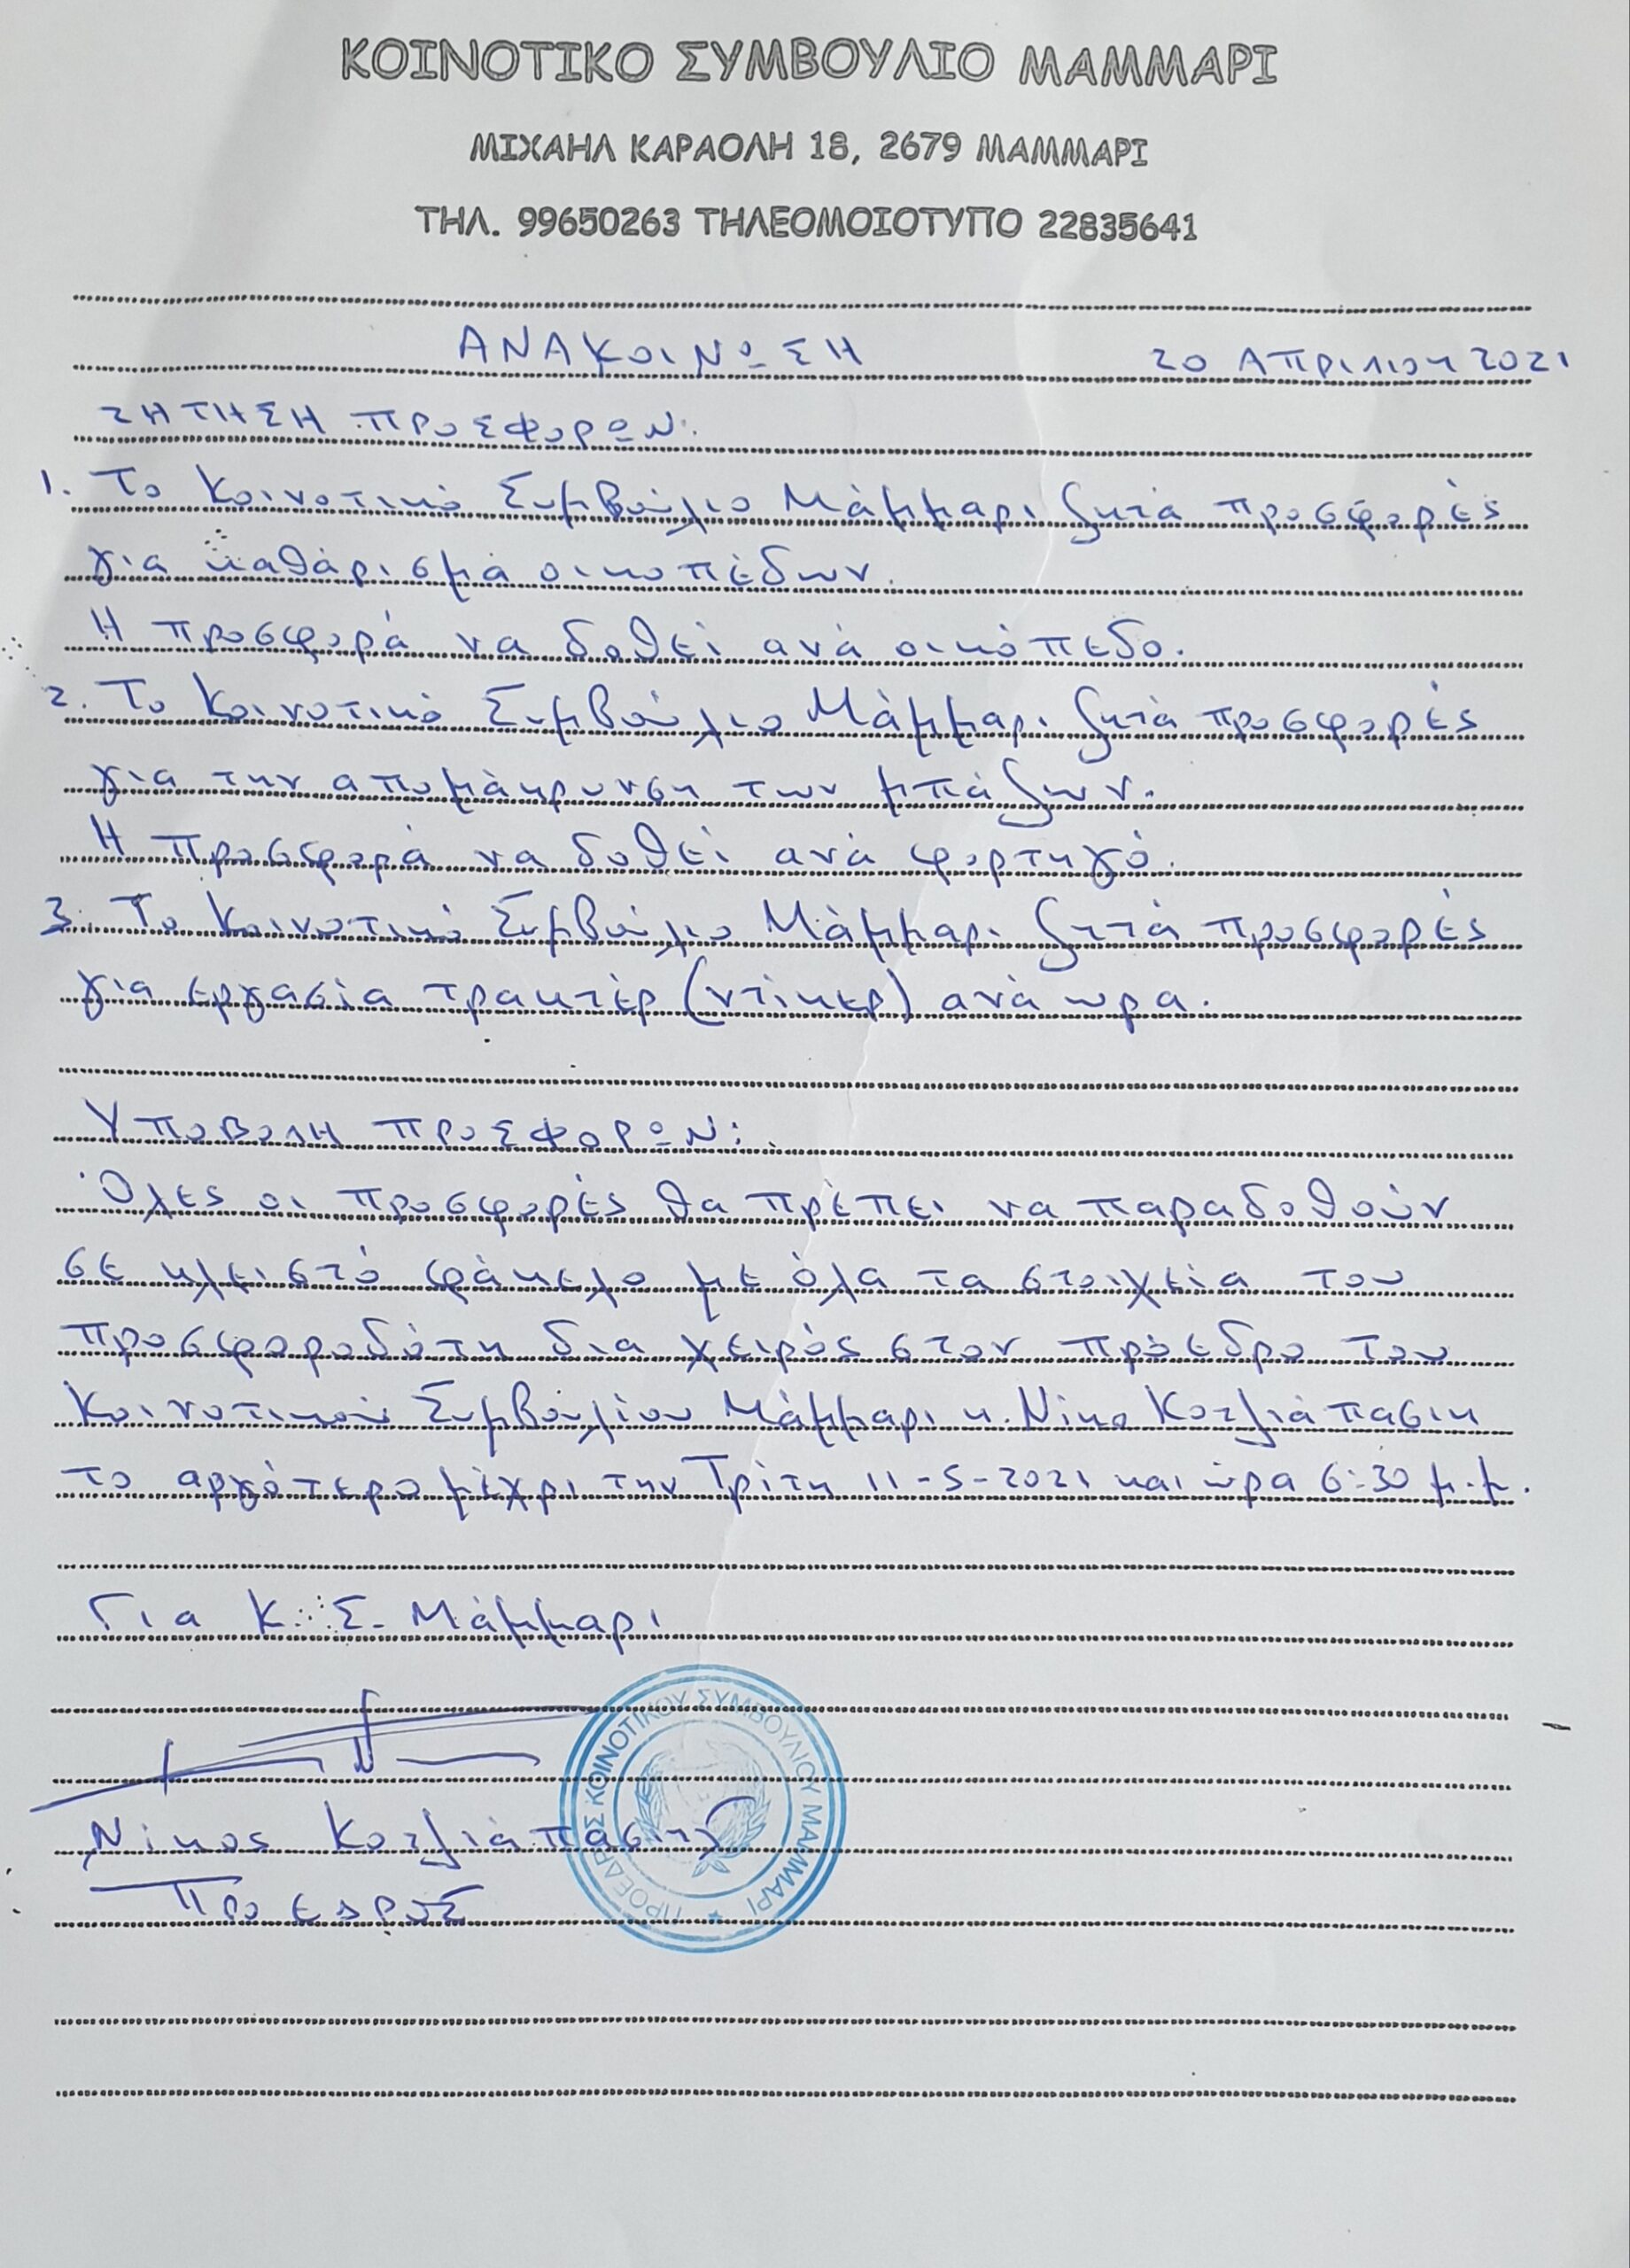 ΚΟΙΝΟΤΙΚΟ ΣΥΜΒΟΥΛΙΟ ΜΑΜΜΑΡΙ
ΜΙΧΑΗΛ ΚΑΡΑΟΛΗ 18, 2679 ΜΑΜΜΑΡΙ
ΤΗΛ. 99650263 ΤΗΛΕΟΜΟΙΟΤΥΠΟ 22835641
ΑΝΑΚΟΙΝΩΣΗ 20 ΑΠΡΙΛΙΟΥ 2021
ΖΗΤΗΣΗ ΠΡΟΣΦΟΡΩΝ.
1. Το Κοινοτικό Συμβούλιο Μάμμαρι ζητά προσφορές
για καθάρισμα οικοπέδων.
Η προσφορά να δοθεί ανά οικόπεδο.
2. Το Κοινοτικό Συμβούλιο Μάμμαρι ζητά προσφορές
για την απομάκρυνση των μπάζων.
Η προσφορά να δοθεί ανά φορτηγό.
3. Το Κοινοτικό Συμβούλιο Μάμμαρι ζητά προσφορές
για εργασία τρακτέρ (ντίκερ) ανά ωρα.
ΥΠΟΒΟΛΗ ΠΡΟΣΦΟΡΩΝ:
Όλες οι προσφορές θα πρέπει να παραδοθούν
σε κλειστό φάκελο με όλα τα στοιχεία του
προσφοροδότη δια χειρός στον πρόεδρο του
Κοινοτικού Συμβουλίου Μάμμαρι κ. Νίκο Κοτζιάπασιη
το αργότερο μέχρι την Τρίτη 11-5-2021 και ώρα 6:30 μ.μ.
Για Κ.Σ. Μάμμαρι
ΠΡΟΕΔΡΟΣ ΚΟΙΝΟΤΙΚΟΥ ΣΥΜΒΟΥΛΙΟΥ ΜΑΜΜΑΡΙ
Νίκος Κοτζιάπασιης
ΠΡΟΕΔΡΟΣ